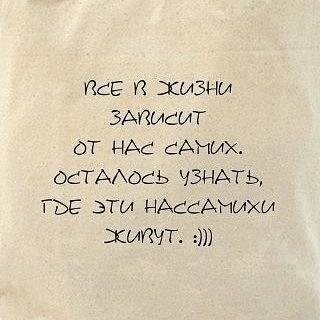 ВСЕ В ЖИЗНИ
ЗАВИСИТ
ОТ НАС САМИХ.
ОСТАЛОСЬ УЗНАТЬ,
ГДЕ ЭТИ НАССАМИХИ
ЖИВУТ. :)))